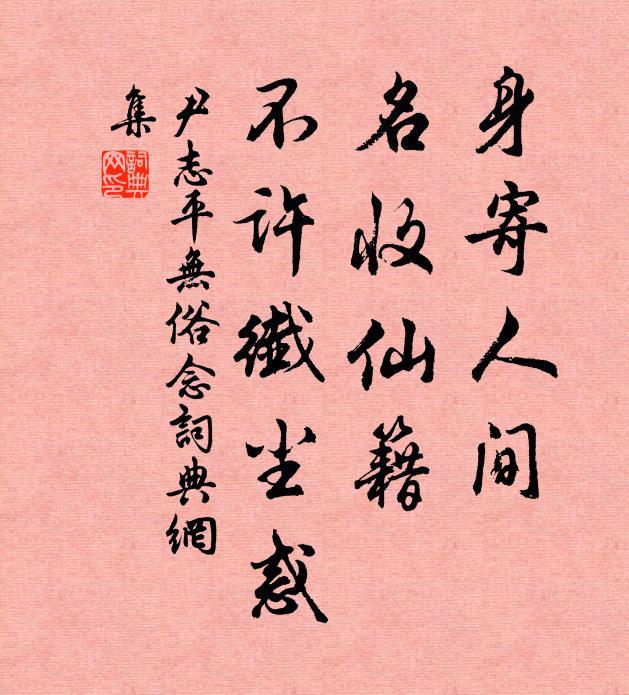 身寄人间
名收仙籍
不许纖尘惑
尹志平無俗念詞典網
集
詞典
网印